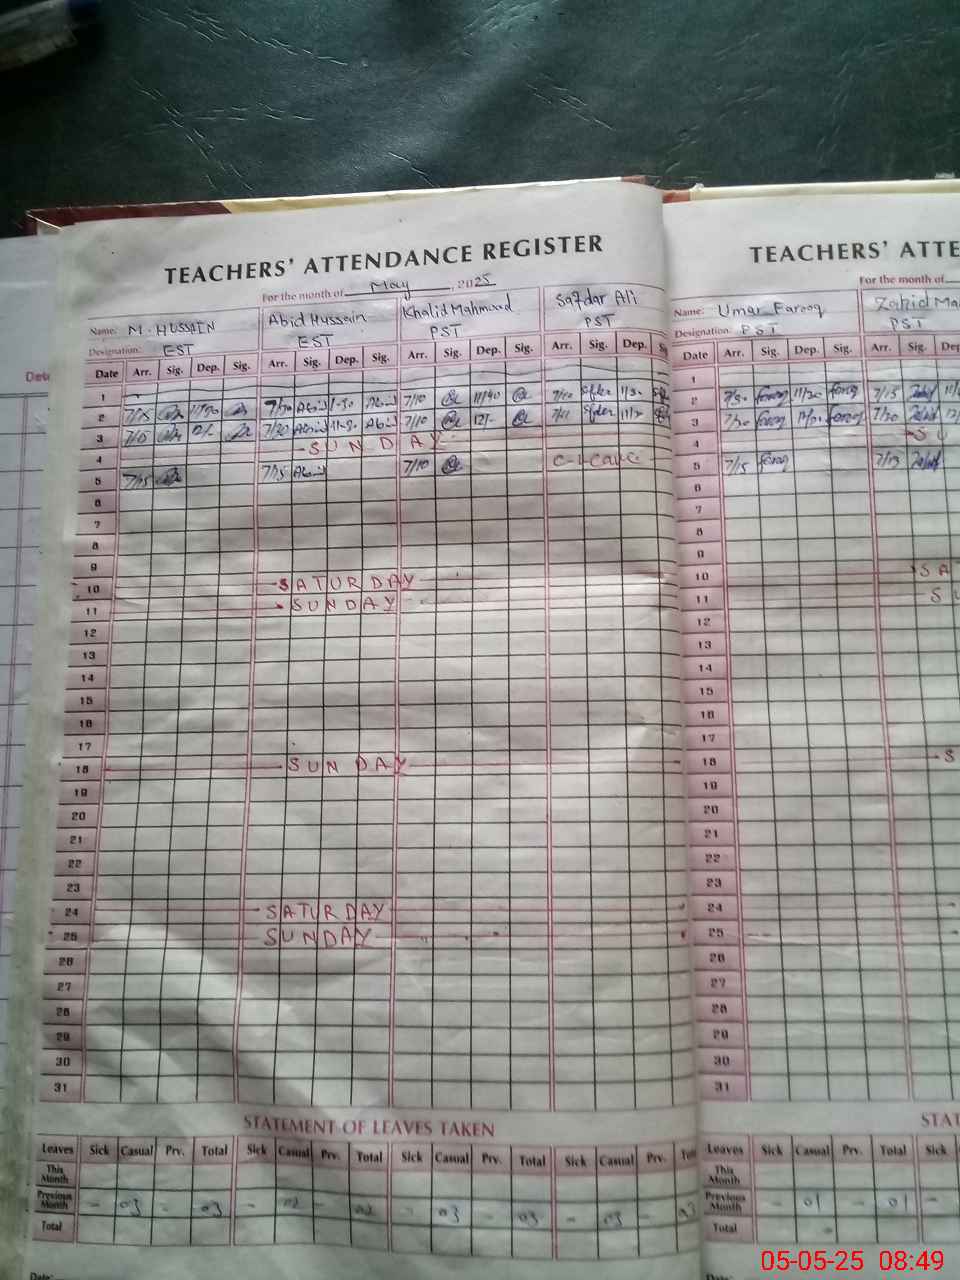 TEACHERS' ATTENDANCE REGISTER
For the month of May, 2025
Name: M. HUSSAIN Abid Hussain Khalid Mahmood Safdar Ali
Designation: EST EST PST PST
Date Arr. Sig. Dep. Sig. Arr. Sig. Dep. Sig. Arr. Sig. Dep. Sig. Arr. Sig. Dep.
1
2 7/15 11/30 7/30 Abid 1-30 Abid 7/10 11/40 7/10 11/30
3 7/15 12/- 7/30 Abid 11-30 Abid 7/10 12/- 7/11
4 SUNDAY
5 7/15 7/15 Abid 7/10 C-Leave
6
7
8
9
10 SATURDAY
11 SUNDAY
12
13
14
15
16
17
18 SUNDAY
19
20
21
22
23
24 SATURDAY
25 SUNDAY
26
27
28
29
30
31
STATEMENT OF LEAVES TAKEN
Leaves Sick Casual Prv. Total Sick Casual Prv. Total Sick Casual Prv. Total Sick Casual Prv.
This Month
Previous Month - 03 - 03 - 02 - 02 - 03 - 03 - 03 - 03
Total
Date:
TEACHERS' ATTE
For the month of
Name: Umar Farooq Zahid Ma
Designation: PST PST
Date Arr. Sig. Dep. Sig. Arr. Sig.
1
2 7/30 Farooq 11/30 Farooq 7/15 Zahid
3 7/30 Farooq 11/30 Farooq 7/30 Zahid
4 SU
5 7/15 Farooq 7/15 Zahid
6
7
8
9
10 SA
11 SU
12
13
14
15
16
17
18 S
19
20
21
22
23
24
25
26
27
28
29
30
31
STAT
Leaves Sick Casual Prv. Total Sick
This Month
Previous Month - 01 - 01 -
Total
Date:
05-05-25 08:49